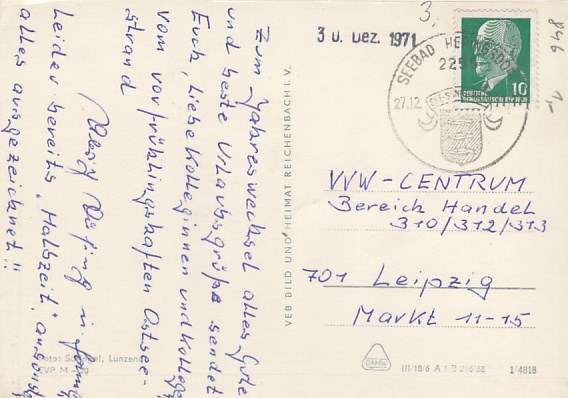 Zum Jahreswechsel alles Gute
und beste Urlaubsgrüße sendet
Euch, liebe Kolleginnen und Kollegen
vom vorfrühlingshaften Ostsee-
strand
Leider bereits „Halbzeit", ansonsten
alles ausgezeichnet!!
3 0. Dez. 1971
3,
846
1,-
SEEBAD HERINGSDORF
27.12
10
VVW-CENTRUM
Bereich Handel
310/312/313
701 Leipzig
Markt 11-15
VEB BILD UND HEIMAT REICHENBACH I. V.
Foto: Lunzenau
EVP M
III/18/6 A 1 B 216/68
1/4818